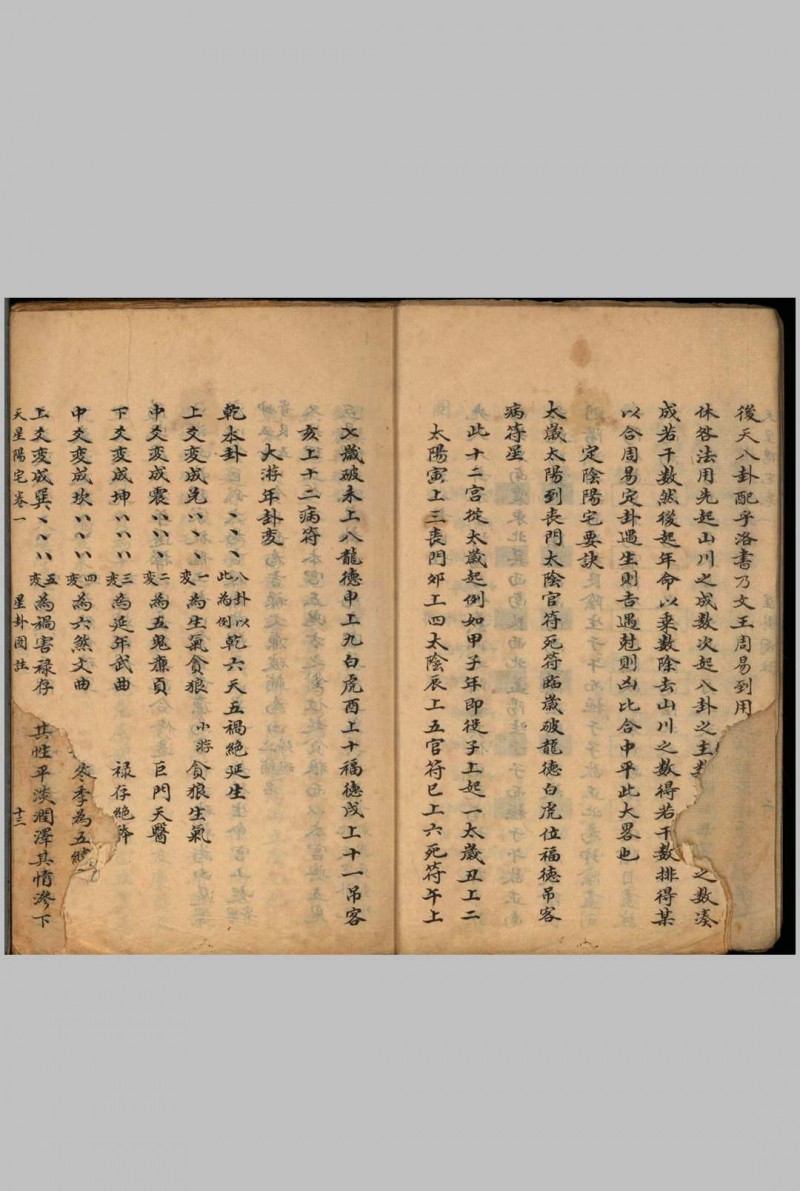 後天八卦配乎洛書乃文王周易到用
休咎法用先起山川之成数次起八卦之主 之数湊
成若干数然後起年命以乗数除去山川之数得若干数排得某
以合周易定卦遇生則吉遇尅則凶比合中平此大畧也
定陰陽宅要訣
太歲太陽到喪門太陰官符死符臨歲破龍德白虎位福徳吊客
病符星
此十二宮挨太歲起例如甲子年即従子上起一太歲丑上二
太陽寅上三喪門夘上四太陰辰上五官符巳上六死符午上
七歲破未上八龍德申上九白虎酉上十福徳戌上十一吊客
亥上十二病符
大游年卦変
乾本卦 、、、 八卦以此為例 乾六天五禍絶延生
上爻変成兑 ハ、、 一変 為生氣貪狼 小游 貪狼生氣
中爻変成震 ハハ、 二変 為五鬼亷貞 巨門天醫
下爻変成坤 ハハハ 三変 為延年武曲 禄存絶
中爻変成坎 ハ、ハ 四変 為六煞文曲 冬季為五
上爻変成巽 、、ハ 五変 為禍害禄存 其性平淡潤澤其情滲下
天星陽宅卷一 星卦図註 十三